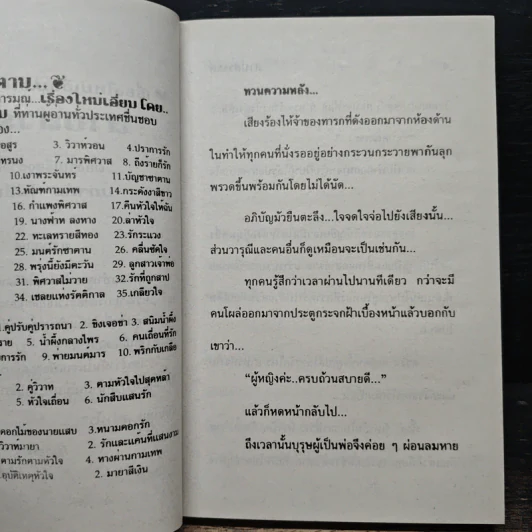 ตาม... ❦
ารมณ์...เรื่องใหม่เอี่ยม โดย..
ม ที่ท่านผู้อ่านทั่วประเทศชื่นชอบ
อง...
อสูร 3. วิวาห์วอน 4.ปราการรัก
ทรนง 7. มารพิศวาส 8. ถึงร้ายก็รัก
10.เงาพระจันทร์ 11.บัญชาซาตาน
13.ทัณฑ์กามเทพ 14.กระดังงาสีขาว
16. กำแพงพิศวาส 17.คืนหัวใจให้ฉัน
19. นางฟ้าหลงทาง 20.ล่าหัวใจ
22. ทะเลทรายสีทอง 23.รักระแวง
25. มนต์รักซาตาน 26. คลื่นซัดใจ
28. พรุ่งนี้ยังมีตะวัน 29. ลูกสาวเจ้าพ่อ
31. พิศวาสไม่วาย 32.รักที่ถูกสาป
34. เชลยแห่งรัตติกาล 35.เกลียวใจ
1.คู่ปรับคู่ปรารถนา 2. ขิงเจอข่า 3. สนิมน้ำผึ้ง
5. น้ำผึ้งกลางไพร 6. คนเถื่อนที่รัก
การรัก 9. พายมนต์มาร 10. พริกกับเกลือ
2. คู่วิวาห์ 3. ตามหัวใจไปสุดหล้า
5. หัวใจเถื่อน 6. นักสืบแสนรัก
ดอกไม้ของนายแสบ 3.หนามดอกรัก
วิวาห์มายา 2. รักและแค้นที่แสนงาม
ตามรักตามหัวใจ 4. ทางผ่านกามเทพ
อุบัติเหตุหัวใจ 2. มายาสีเงิน
ทวนความหลัง...
เสียงร้องไห้จ้าของทารกที่ดังออกมาจากห้องด้าน
ในทำให้ทุกคนที่นั่งรออยู่อย่างกระวนกระวายพากันลุก
พรวดขึ้นพร้อมกันโดยไม่ได้นัด...
อภิบัญมัวยืนตะลึง...ใจจดใจจ่อไปยังเสียงนั้น...
ส่วนวารุณีและคนอื่นก็ดูเหมือนจะเป็นเช่นกัน...
ทุกคนรู้สึกว่าเวลาผ่านไปนานทีเดียว กว่าจะมี
คนโผล่ออกมาจากประตูกระจกฝ้าเบื้องหน้าแล้วบอกกับ
เขาว่า...
“ผู้หญิงค่ะ..ครบถ้วนสบายดี...”
แล้วก็หดหน้ากลับไป...
ถึงเวลานั้นบุรุษผู้เป็นพ่อจึงค่อย ๆ ผ่อนลมหาย